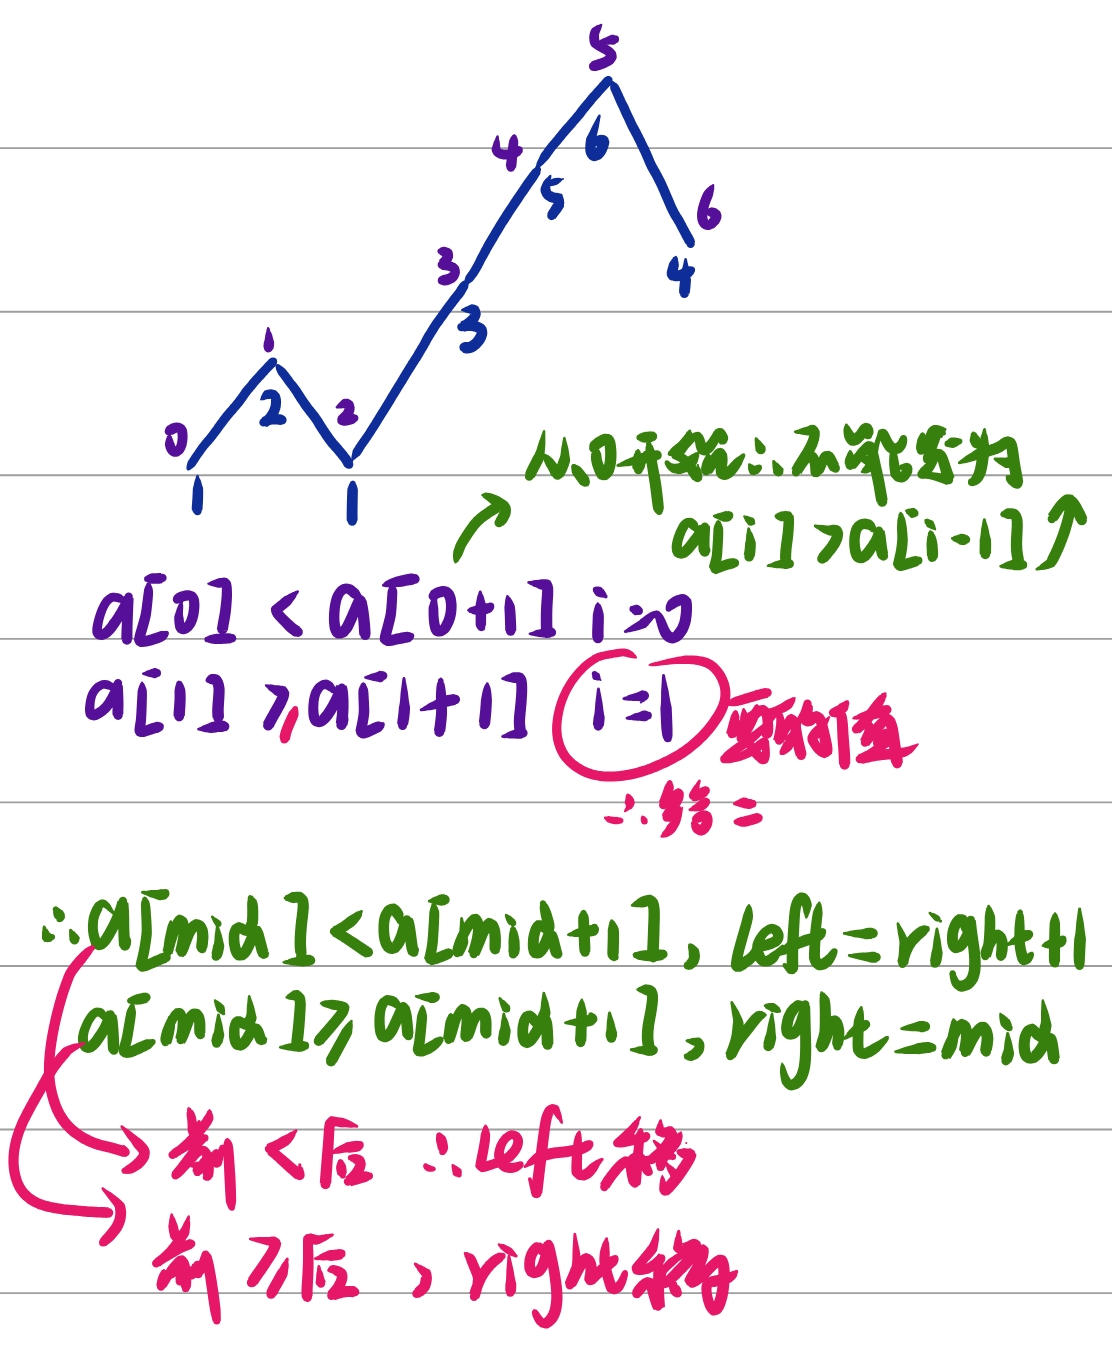 5
4
6
5
6
3
4
3
1
2
2
0
1
1
从0开始∴不能变为
a[i]>a[i-1]
a[0]<a[0+1] i=0
a[1]≥a[1+1] i=1 要的值
∴给=
∴a[mid]<a[mid+1], left=right+1
a[mid]≥a[mid+1], right=mid
前<后 ∴left移
前≥后, right移